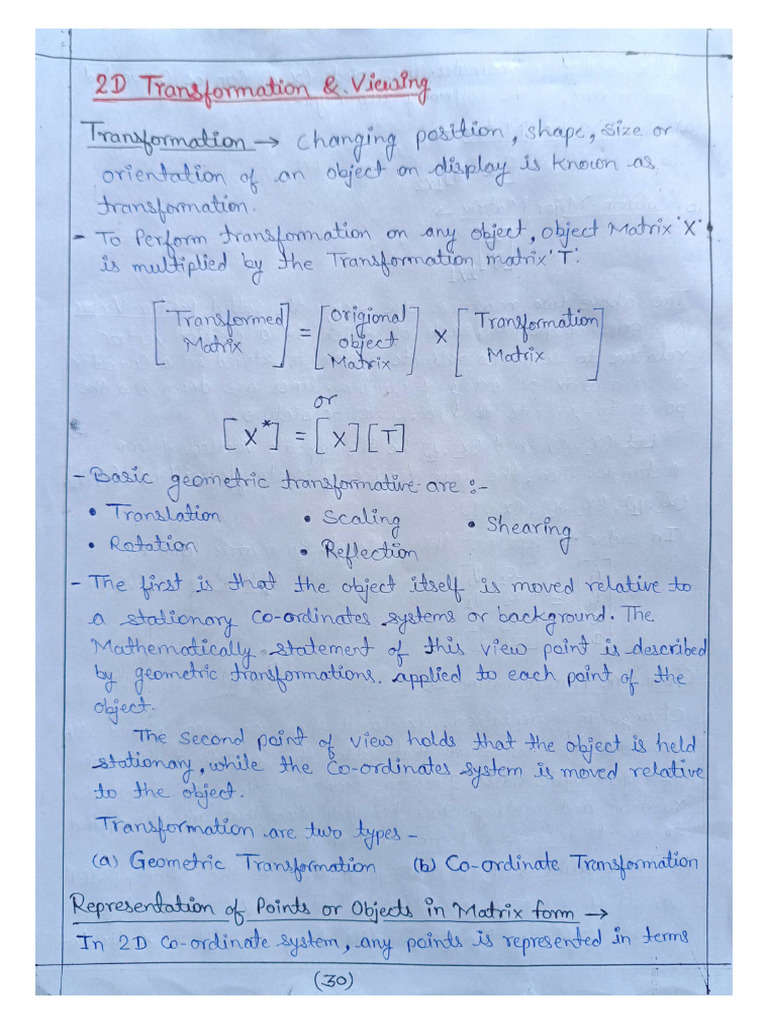 2D Transformation & Viewing
Transformation → changing position, shape, size or
orientation of an object on display is known as
transformation.
- To Perform transformation on any object, object Matrix 'X'
is multiplied by the Transformation matrix 'T'.
[Transformed Matrix] = [Origional object Matrix] × [Transformation Matrix]
or
[X*] = [X][T]
- Basic geometric transformative are :-
• Translation • Scaling • Shearing
• Rotation • Reflection
- The first is that the object itself is moved relative to
a stationary co-ordinates systems or background. The
Mathematically statement of this view point is described
by geometric transformations. applied to each point of the
object.
The second point of view holds that the object is held
stationary, while the co-ordinates system is moved relative
to the object.
Transformation are two types -
(a) Geometric Transformation (b) Co-ordinate Transformation
Representation of Points or Objects in Matrix form →
In 2D co-ordinate system, any points is represented in terms
(30)